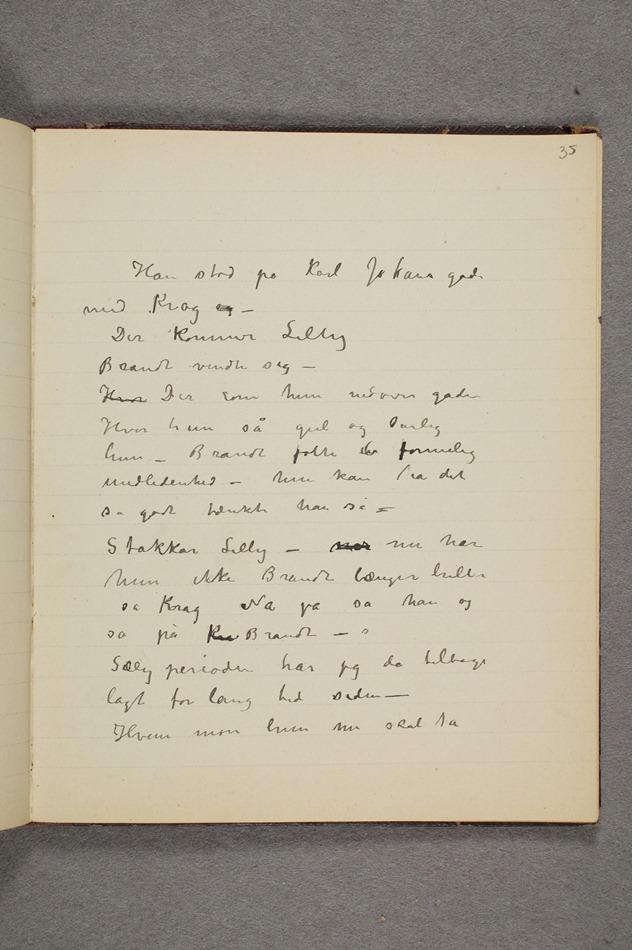 35
Han stod på Karl Johans gade
med Krag og –
Der kommer Lilly
Brandt vendte seg –
Hvor Der kom hun nedover gaden
Hvor hun så gul og dårlig
hun – Brandt følte en formelig
medlidenhed – hun kan ha det
så godt tænkte han så –
Stakkar Lilly – nu har
hun ikke Brandt længer heller
sa Krag Nå ja sa han og
så på Kra Brandt –
Lilly perioden har jeg da tilbage
lagt for lang tid siden –
Hvem mon hun nu skal ta